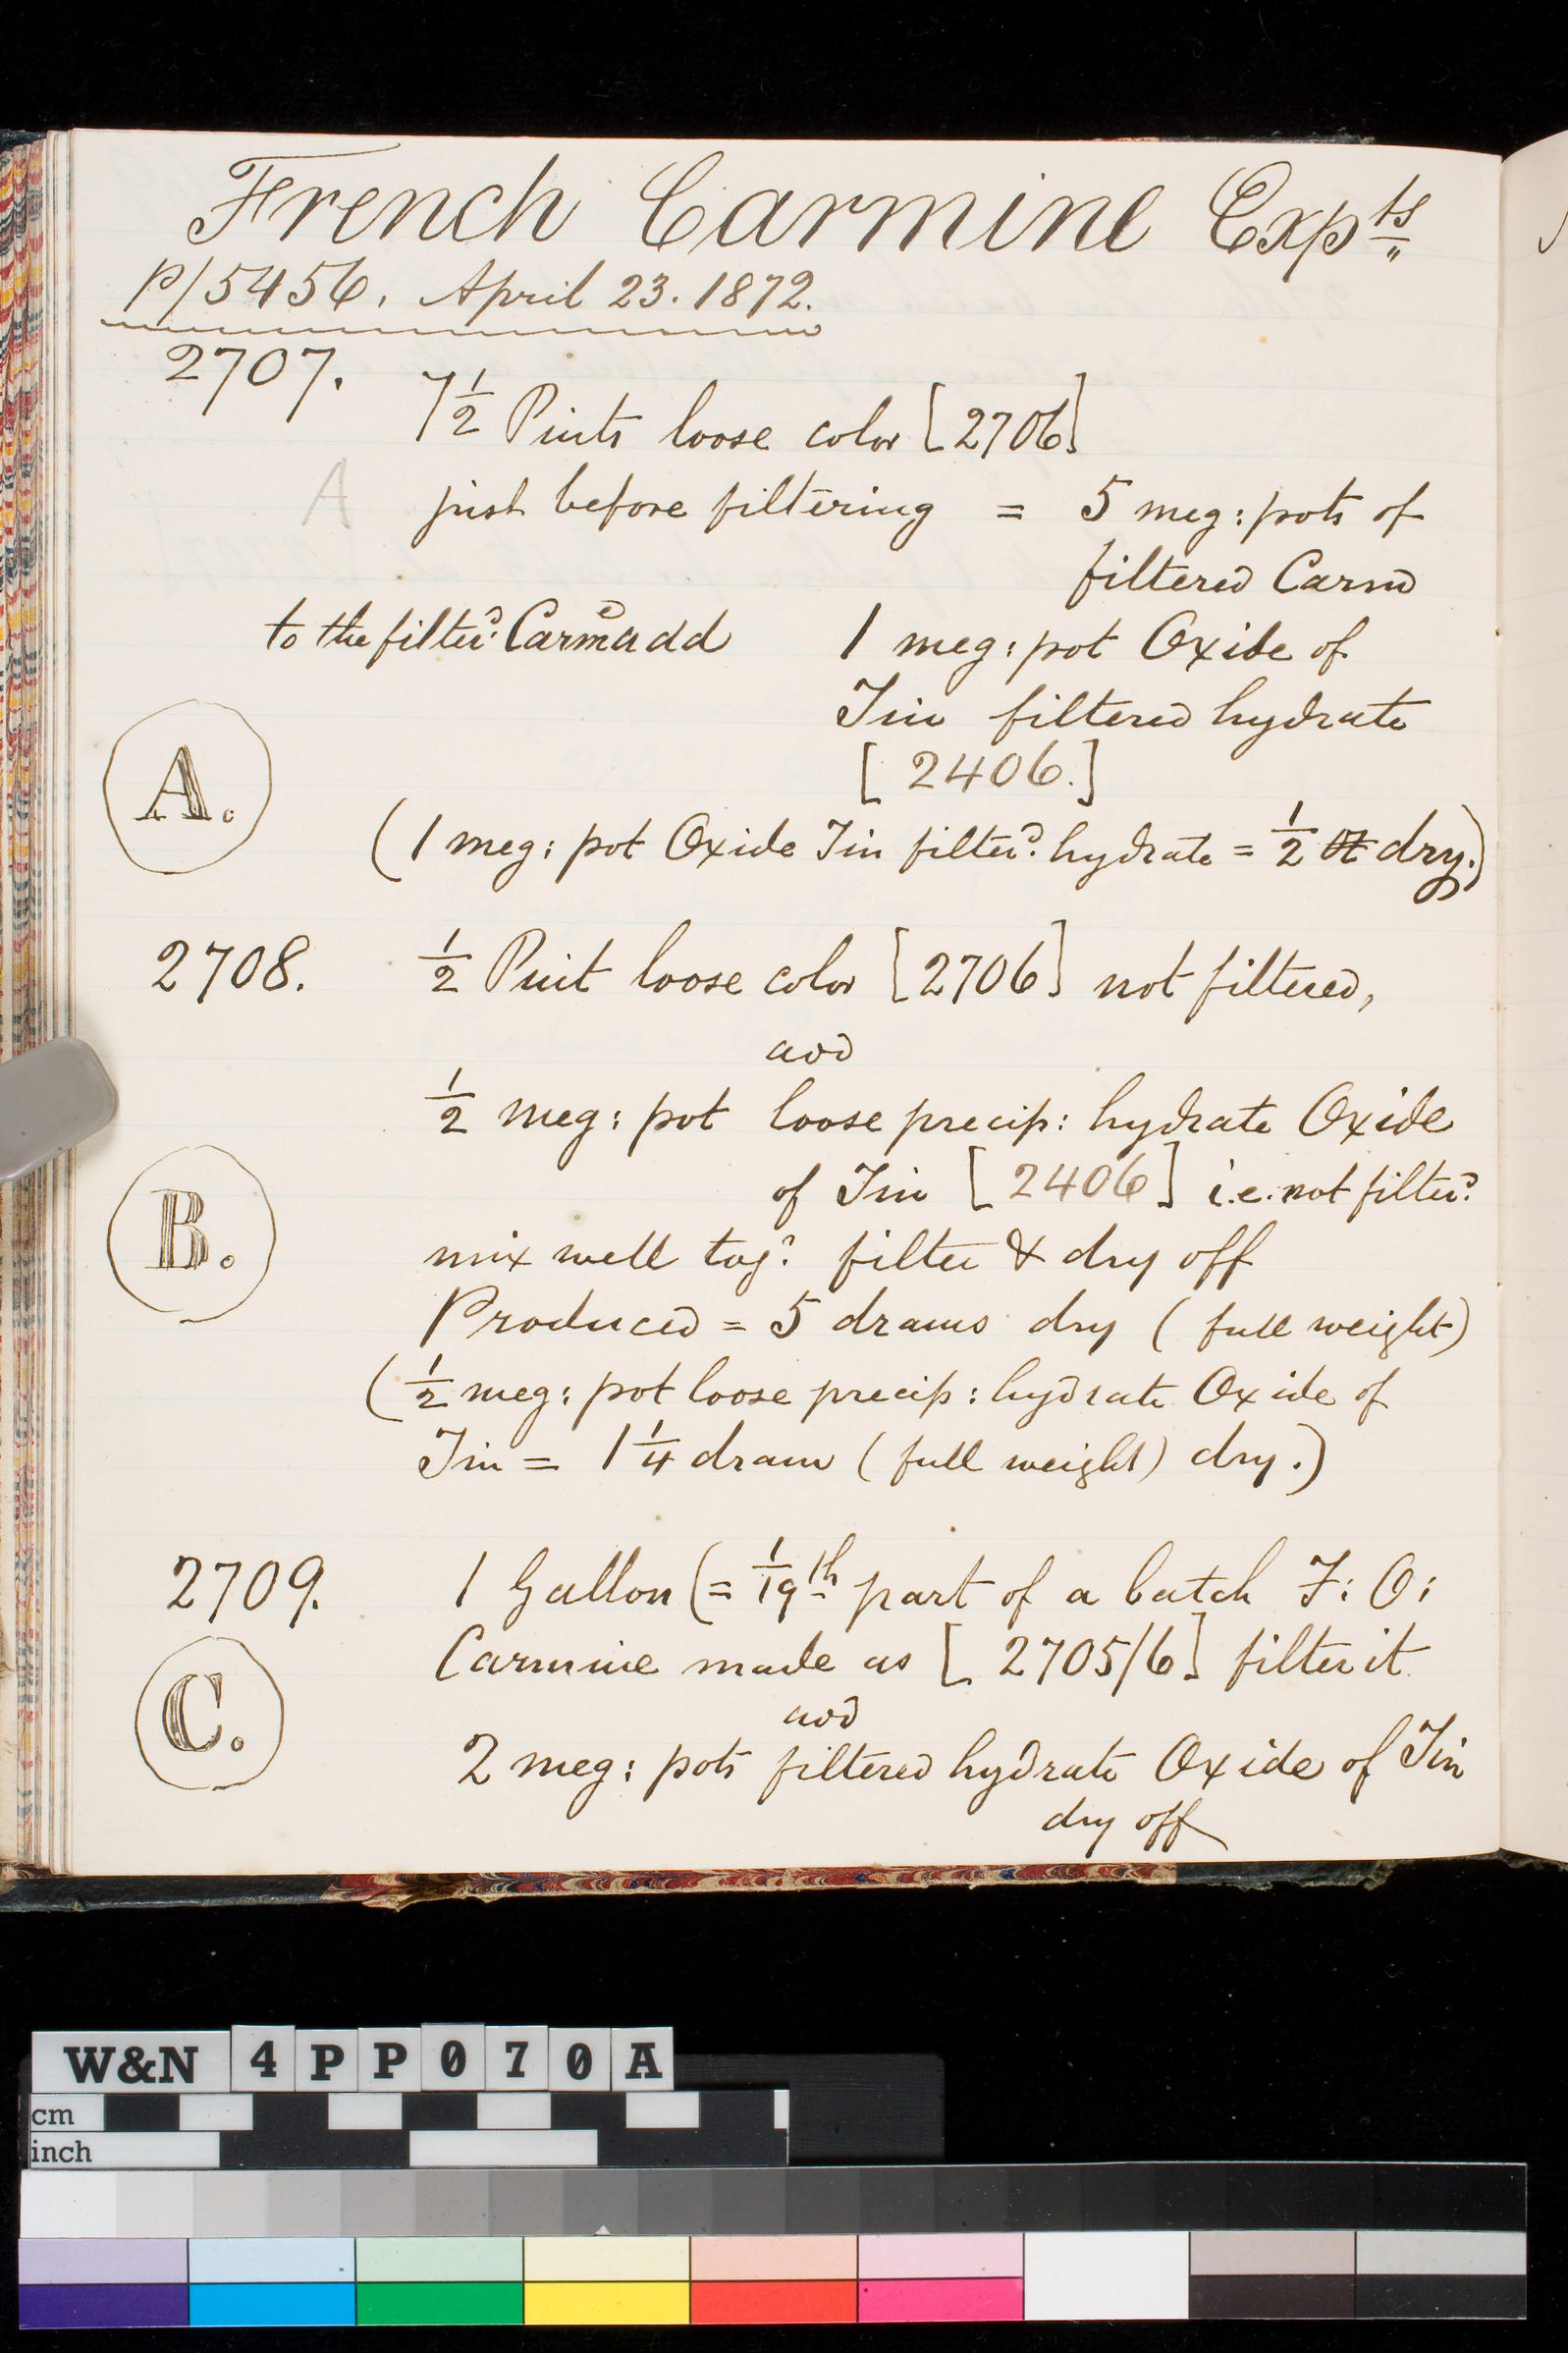 French Carmine Expts
P/5456. April 23. 1872.
2707. 7½ Pints loose color [2706]
A just before filtering = 5 meg: pots of
filtered Carmd
to the filterd: Carme add 1 meg: pot Oxide of
Tin filtered hydrate
[2406.]
A.
(1 meg: pot Oxide Tin filterd. hydrate = ½ lb dry.)
2708. ½ Pint loose color [2706] not filtered,
add
½ meg: pot loose precip: hydrate Oxide
of Tin [2406] i.e. not filterd.
B.
mix well togr. filter & dry off
Produced = 5 drams dry (full weight)
(½ meg: pot loose precip: hydrate Oxide of
Tin = 1¼ dram (full weight) dry.)
2709. 1 Gallon (= 1/19th part of a batch F: O:
Carmine made as [2705/6] filter it
C.
add
2 meg: pots filtered hydrate Oxide of Tin
dry off
W&N 4PP070A
cm
inch